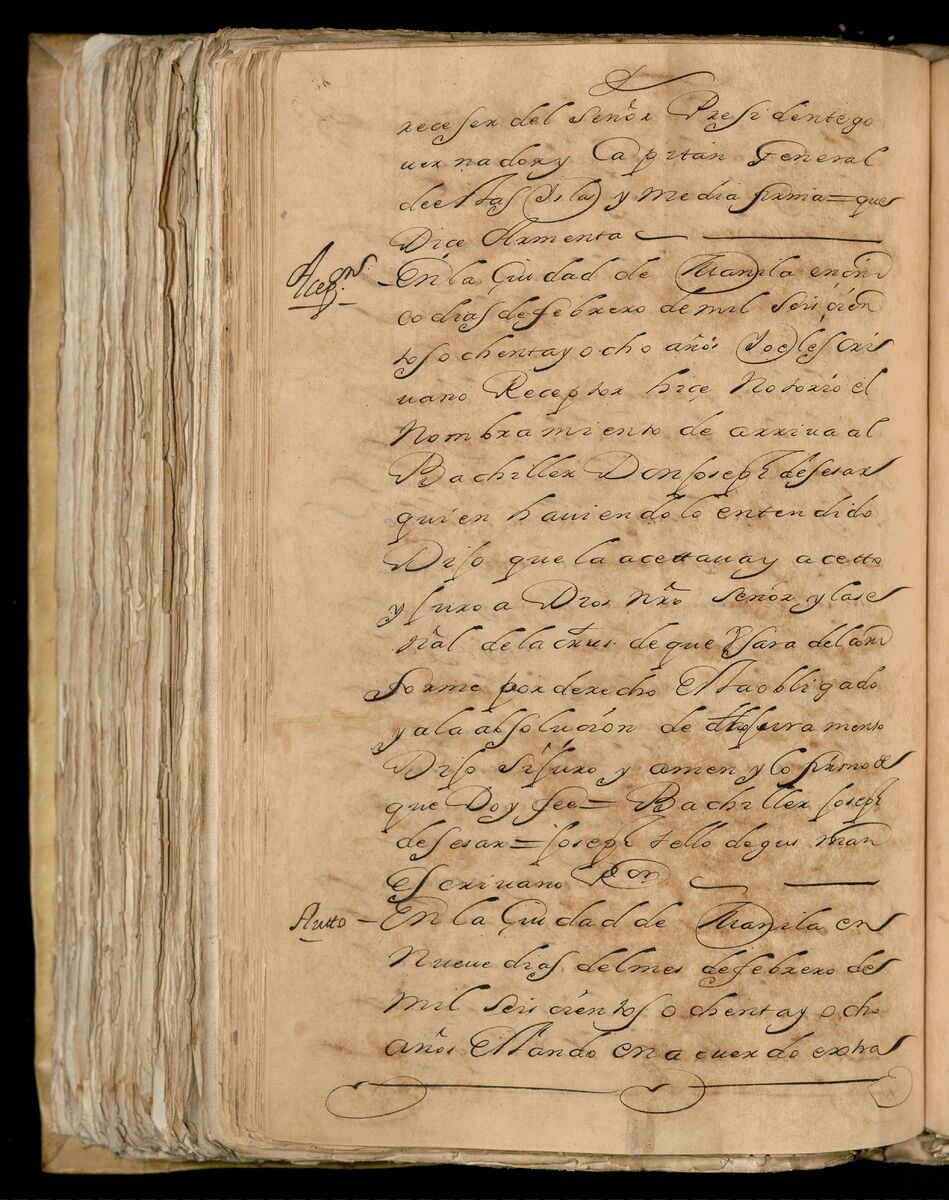 receser del Señor Presidente go
uernador y Capitan General
de estas Yslas y media firma = que
Dice Armenta
Acep.on
En la Ciudad de Manila en cin
co dias de febrero de mil Seis cien
tos ochenta y ocho años Yo el escri
uano Receptor hice Notorio el
Nombramiento de arriua al
Bachiller Don Joseph de sesar
quien hauiendolo entendido
Dijo que la acettaua y acetto
y juro a Dios Nro Señor y la se
ñal de la crus de que Usara del con
forme por derecho esta obligado
y a la absolucion de dho juramento
Dijo si juro y amen y lo firmo de
que Doy fee = Bachiller Joseph
de sesar = Joseph tello de gusman
escriuano Rcon
Autto
En la Ciudad de Manila en
Nueue dias del mes de febrero de
mil seis cientos ochenta y ocho
años estando en acuerdo extra